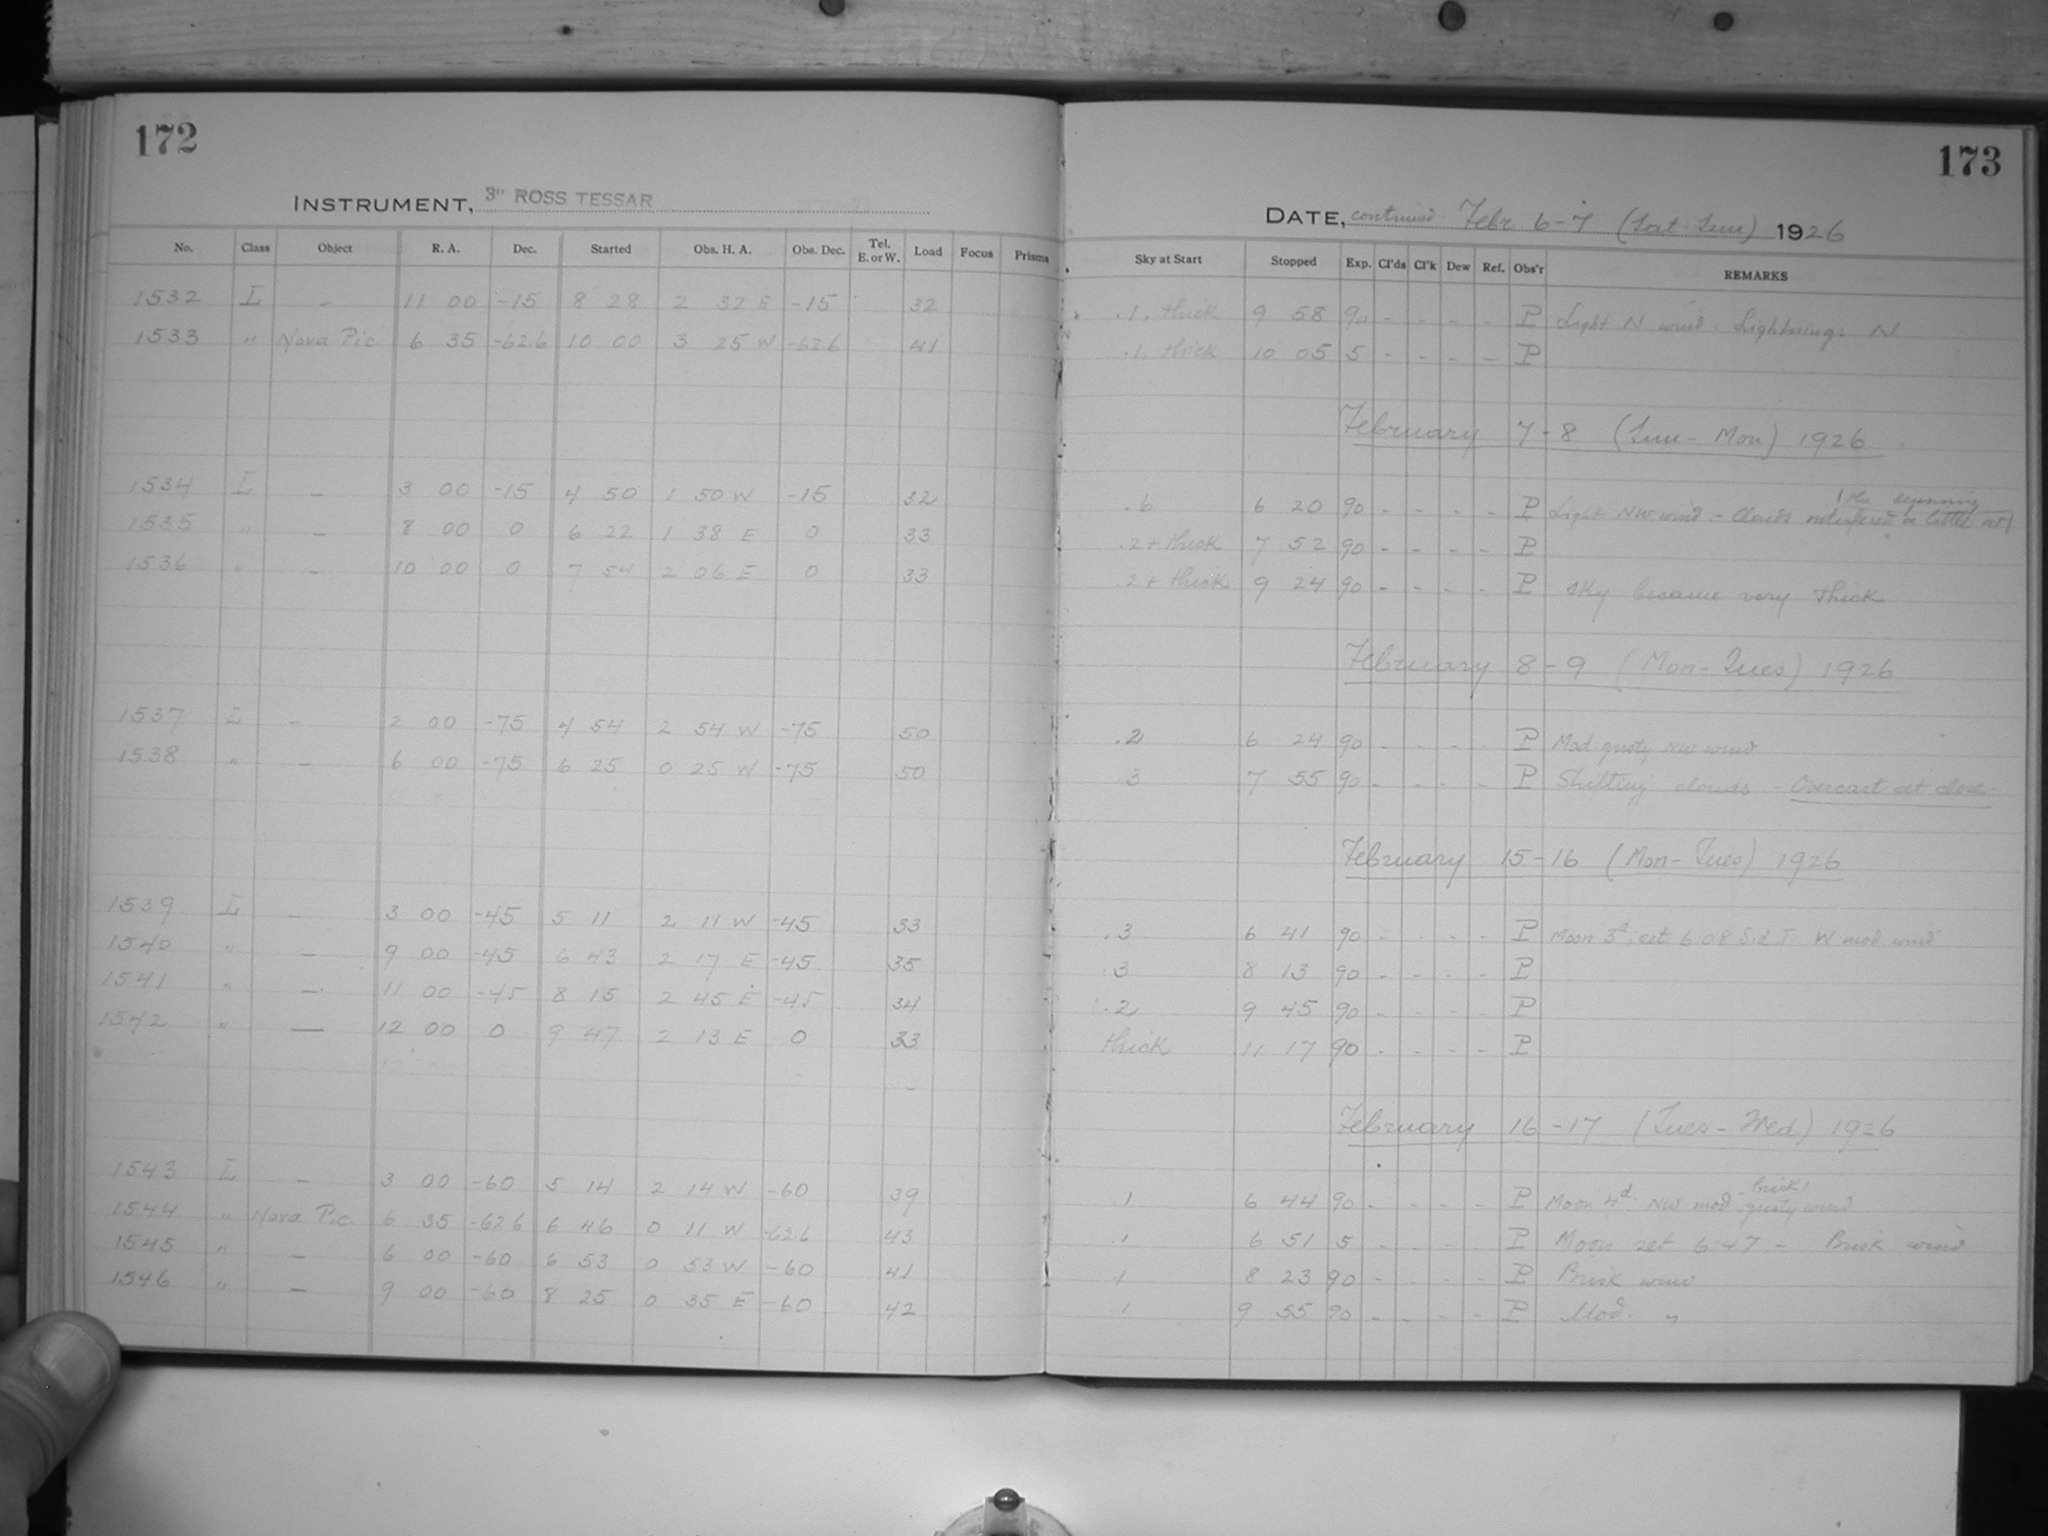 172
INSTRUMENT, 3" ROSS TESSAR
No. Class Object R. A. Dec. Started Obs. H. A. Obs. Dec. Tel. E. or W. Load Focus Prisms
1532 L - 11 00 -15 8 28 2 32 E -15 32
1533 " Nova Pic 6 35 -62.6 10 00 3 25 W -62.6 41
1534 L - 3 00 -15 4 50 1 50 W -15 32
1535 " - 8 00 0 6 22 1 38 E 0 33
1536 " - 10 00 0 7 54 2 06 E 0 33
1537 L - 2 00 -75 4 54 2 54 W -75 50
1538 " - 6 00 -75 6 25 0 25 W -75 50
1539 L - 3 00 -45 5 11 2 11 W -45 33
1540 " - 9 00 -45 6 43 2 17 E -45 35
1541 " - 11 00 -45 8 15 2 45 E -45 34
1542 " — 12 00 0 9 47 2 13 E 0 33
1543 L - 3 00 -60 5 14 2 14 W -60 39
1544 " Nova Pic. 6 35 -62.6 6 46 0 11 W -62.6 43
1545 " - 6 00 -60 6 53 0 53 W -60 41
1546 " - 9 00 -60 8 25 0 35 E -60 42
173
DATE, continued Febr. 6-7 (Sat-Sun) 1926
Sky at Start Stopped Exp. Cl'ds Cl'k Dew Ref. Obs'r REMARKS
.1, thick 9 58 90 - - - - P Light N wind. Lightnings N
.1, thick 10 05 5 - - - - P
February 7-8 (Sun-Mon) 1926
the beginning
.6 6 20 90 - - - - P Light NW wind - Clouds interfered a little at
.2+ thick 7 52 90 - - - - P
.2+ thick 9 24 90 - - - - P Sky became very thick
February 8-9 (Mon-Tues) 1926
.2 6 24 90 - - - - P Mod. gusty NW wind
.3 7 55 90 - - - - P Shifting clouds - Overcast at close
February 15-16 (Mon-Tues) 1926
.3 6 41 90 - - - - P Moon 3d, set 6.08 Sid T. W mod. wind
.3 8 13 90 - - - - P
.2 9 45 90 - - - - P
thick 11 17 90 - - - - P
February 16-17 (Tues-Wed) 1926
-brisk
.1 6 44 90 - - - - P Moon 4d. NW mod. gusty wind
.1 6 51 5 - - - - P Moon set 6.47 - Brisk wind
.1 8 23 90 - - - - P Brisk wind
.1 9 55 90 - - - - P Mod. "